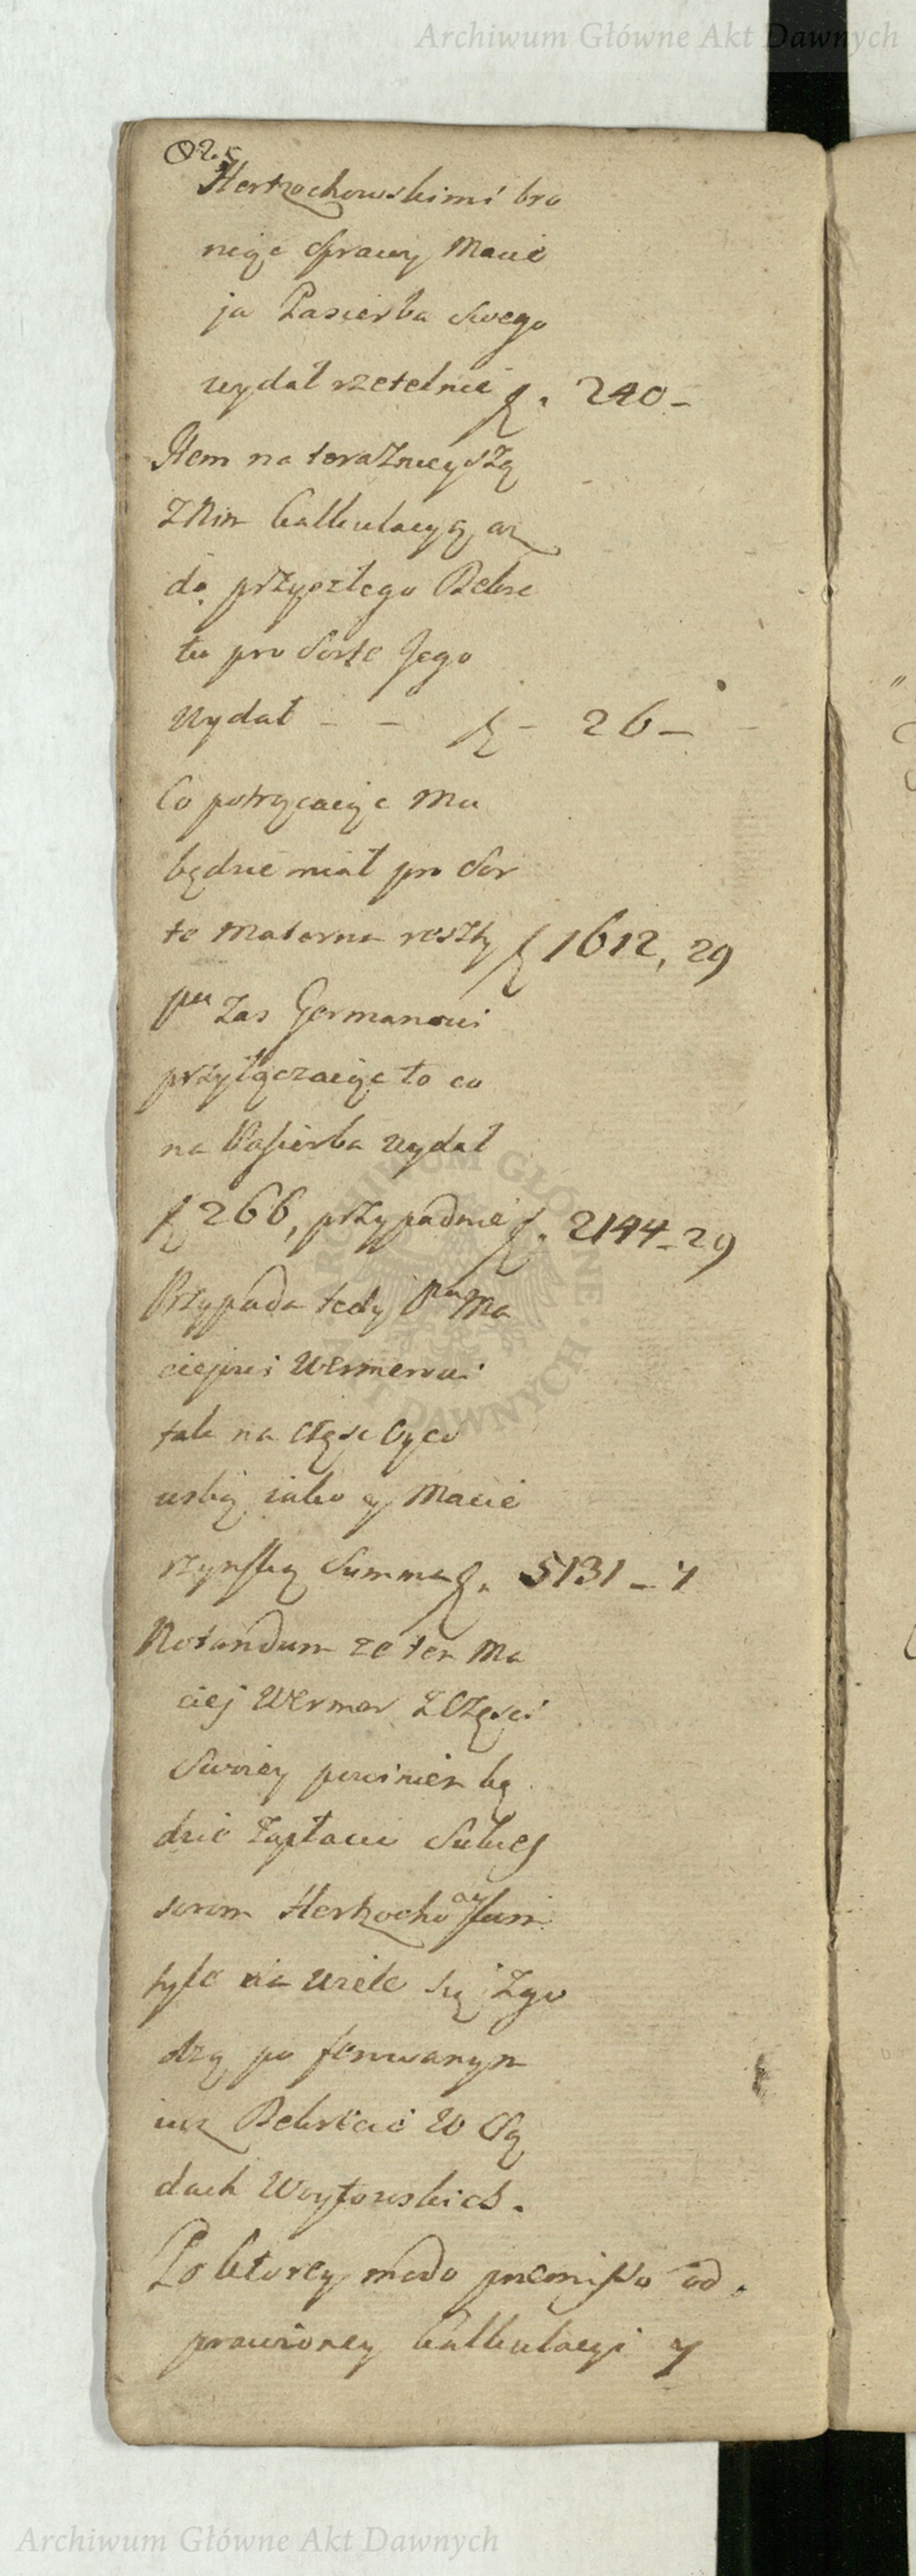 Archiwum Główne Akt Dawnych
Hertzochowskimi bro
niąc Sprawy Macie
ja Pasierba Swego
wydał rzetelnie f. 240 -
Item na teraznieyszą
z Nim Calkulacyą az
do przyszłego Dekre
tu pro Sorte Jego
Wydał - - f - 26 -
Co potrącaiąc Mu
będzie miał pro Sor
te Materna reszty f 1612, 29
pu Zas Germanowi
przyłączaiąc to co
na Pasierba wydał
f 266, przypadnie f. 2144 - 29
Przypada tedy Pnu Ma
ciejowi Wermerowi
tak na Częsc Oyco
wską iako y Macie
rzynską Summa f. 5131 - 7
Notandum ze ten Ma
ciej Wermer z Częsci
Swoiey powinien bę
dzie Zapłacic Sukces
sorom Hertzochowskim
tyle na wiele się Zgo
dzą po ferowanym
iuz Dekrecie w Są
dach Woytowskich.
Po ktorey modo premisso od
prawioney Calkulacyi y
ARCHIWUM GŁÓWNE AKT DAWNYCH
Archiwum Główne Akt Dawnych